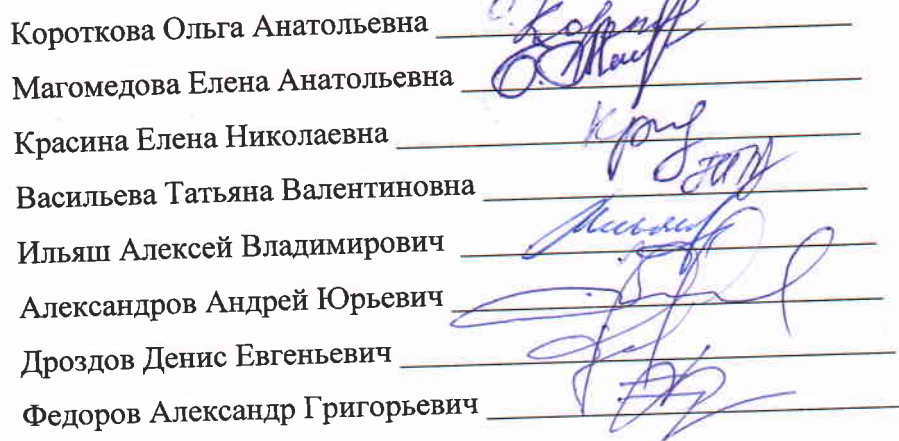 Короткова Ольга Анатольевна
Магомедова Елена Анатольевна
Красина Елена Николаевна
Васильева Татьяна Валентиновна
Ильяш Алексей Владимирович
Александров Андрей Юрьевич
Дроздов Денис Евгеньевич
Федоров Александр Григорьевич